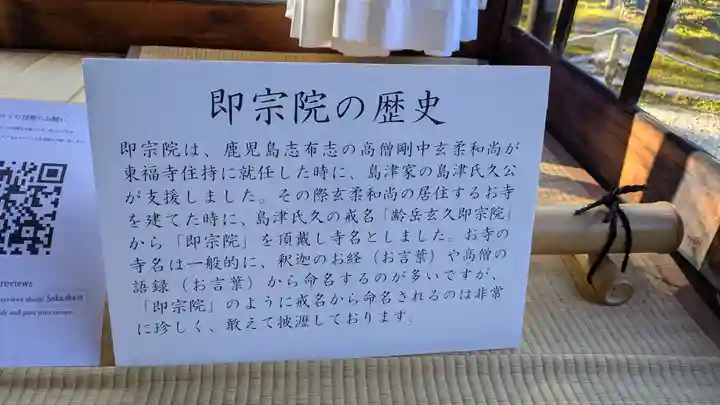 即宗院の歴史
即宗院は、鹿児島志布志の高僧剛中玄柔和尚が
東福寺住持に就任した時に、島津家の島津氏久公
が支援しました。その際玄柔和尚の居住するお寺
を建てた時に、島津氏久の戒名「齢岳玄久即宗院」
から「即宗院」を頂戴し寺名としました。お寺の
寺名は一般的に、釈迦のお経（お言葉）や高僧の
語録（お言葉）から命名するのが多いですが、
「即宗院」のように戒名から命名されるのは非常
に珍しく、敢えて披瀝しております。
reviews